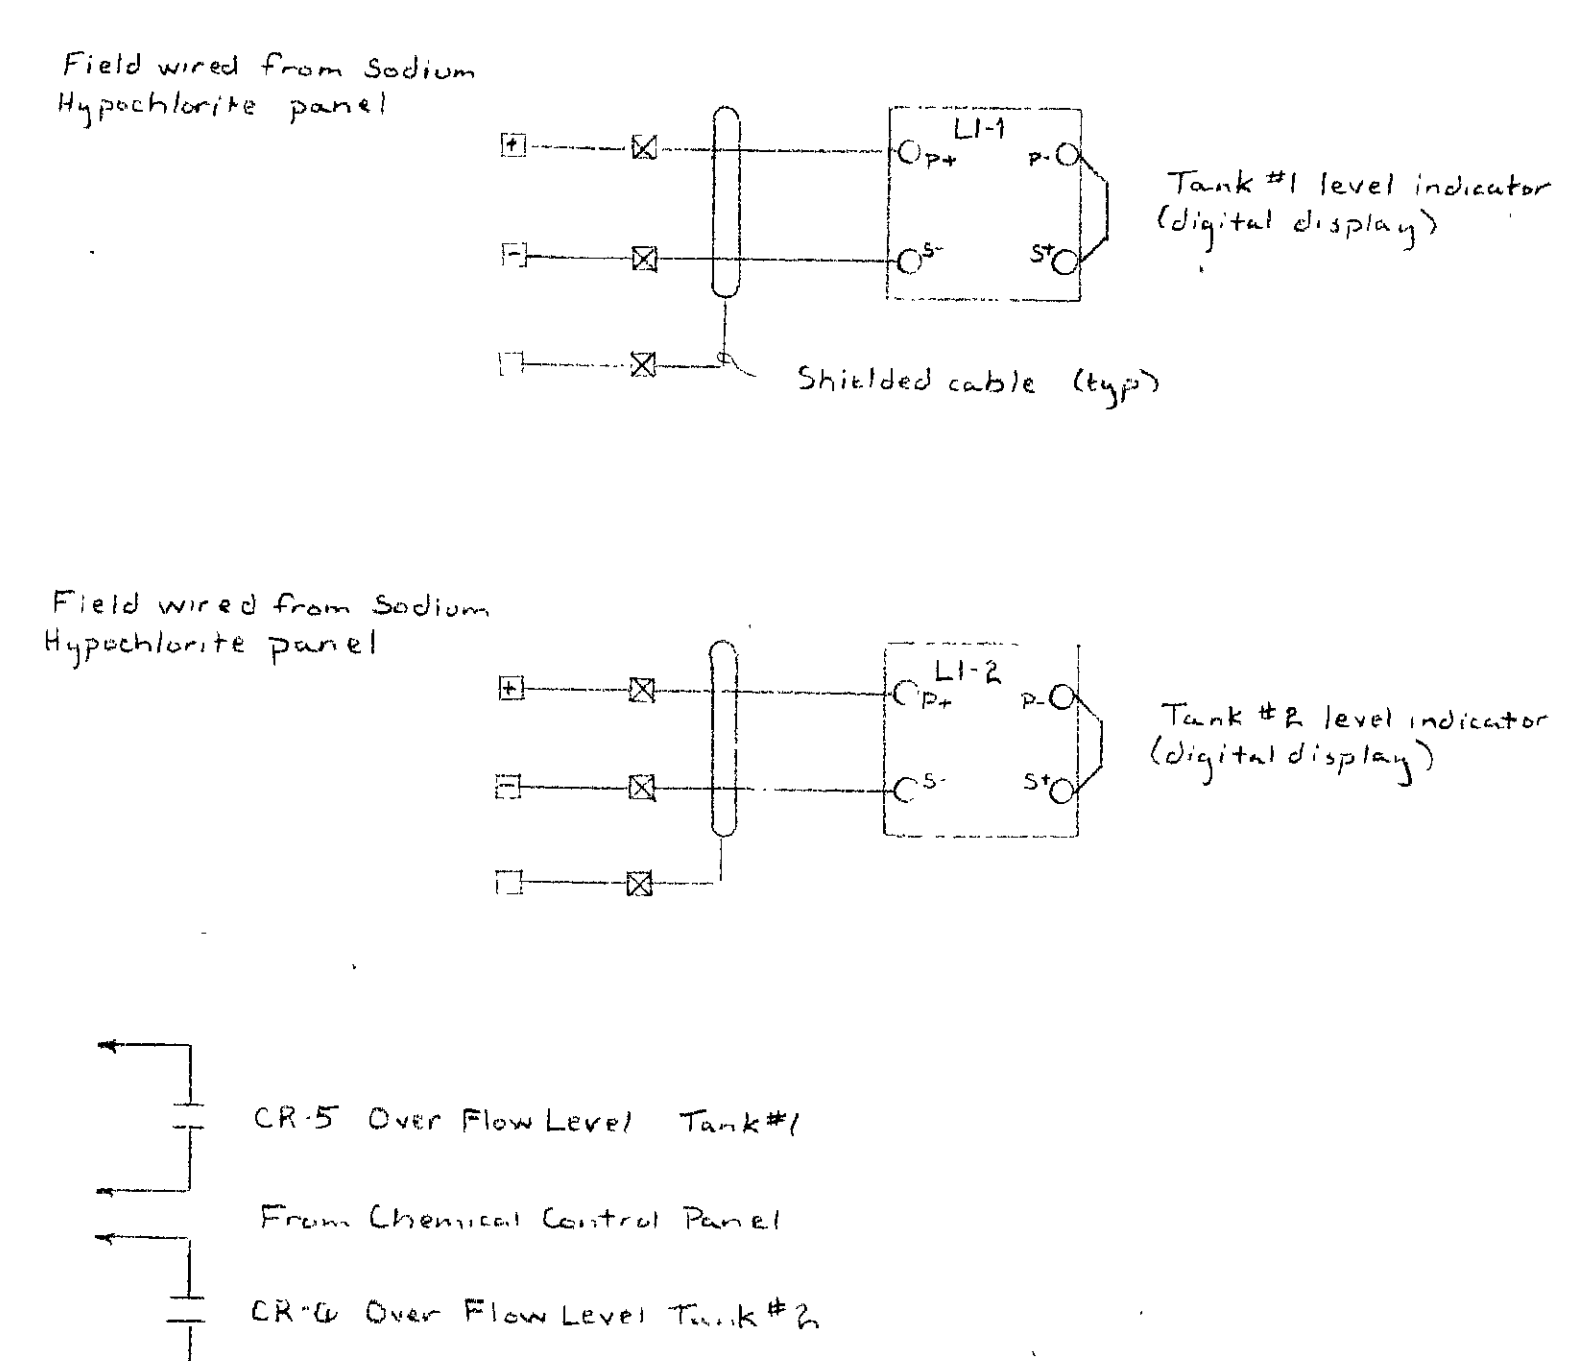 Field wired from Sodium
Hypochlorite panel
+
LI-1
P+ P-
Tank #1 level indicator
(digital display)
-
S- S+
Shielded cable (typ)
Field wired from Sodium
Hypochlorite panel
+
LI-2
P+ P-
Tank #2 level indicator
(digital display)
-
S- S+
CR-5 Over Flow Level Tank #1
From Chemical Control Panel
Over Flow Level Tank #2